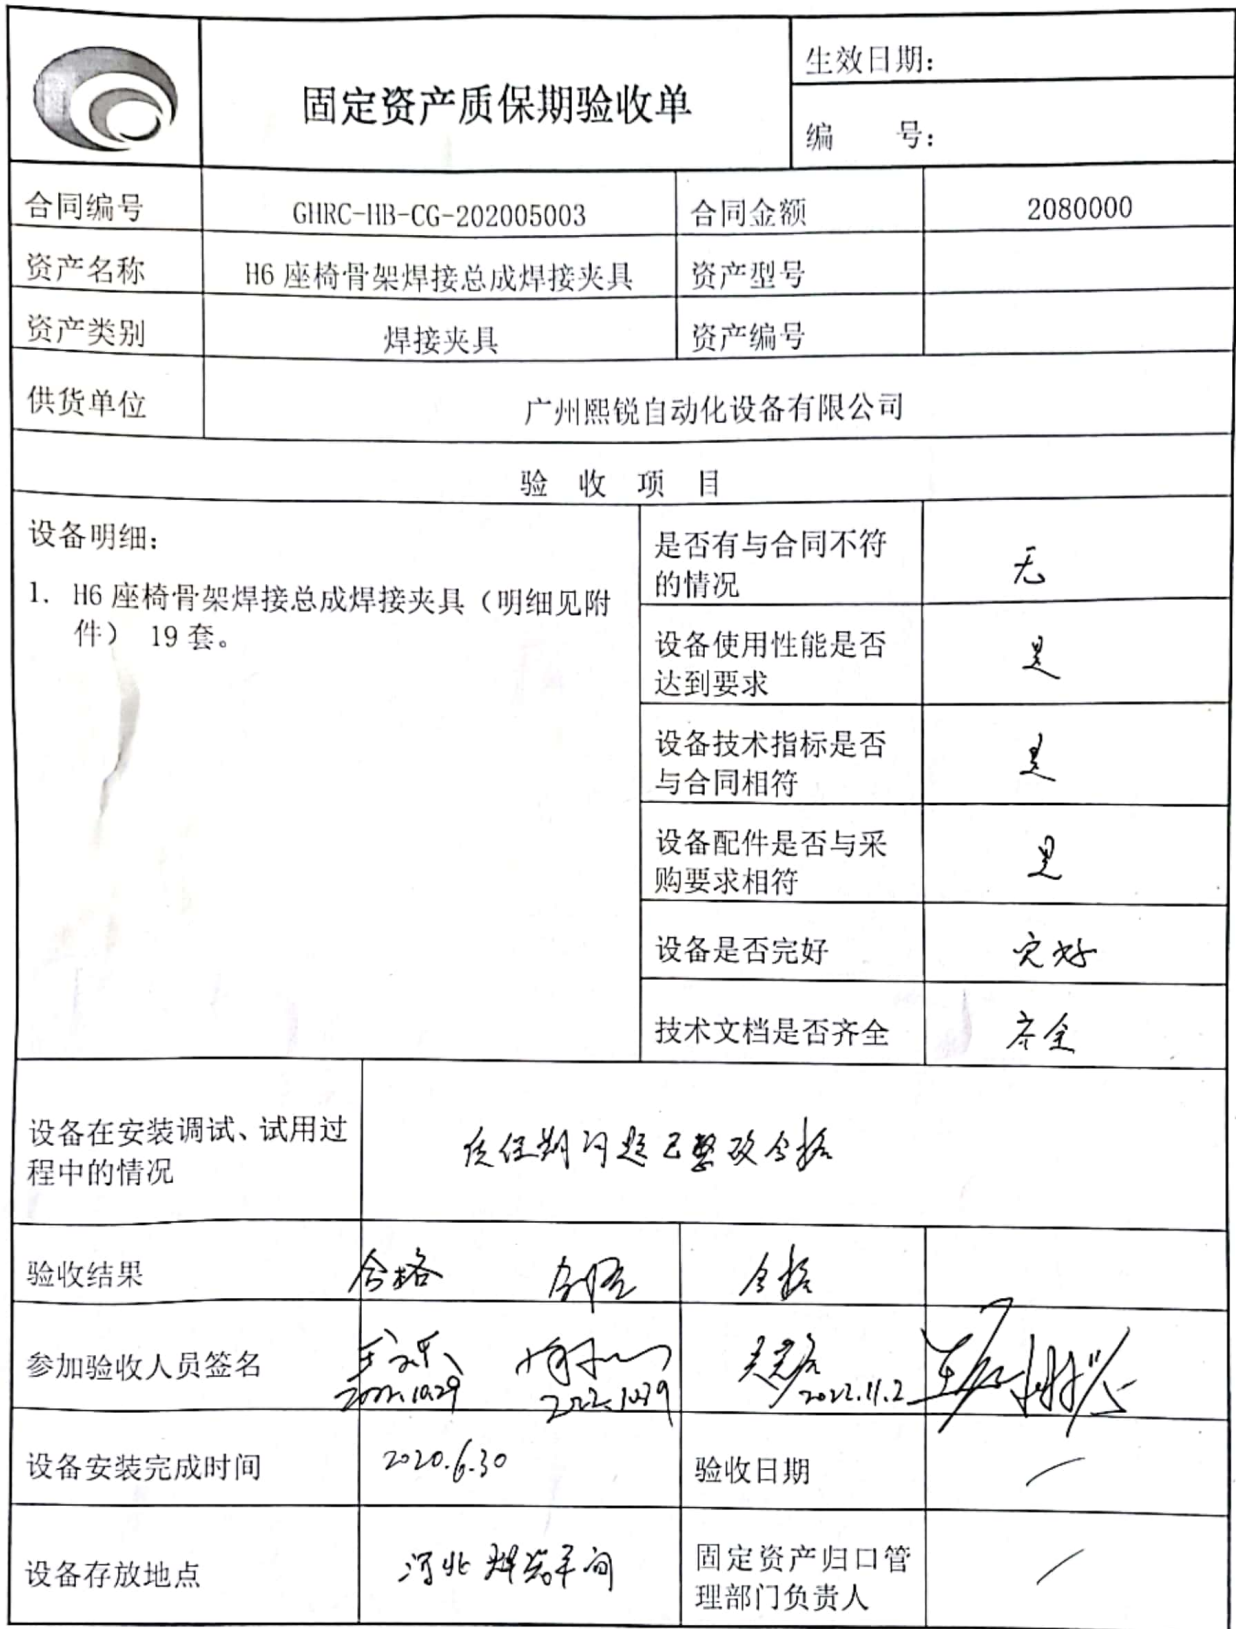 固定资产质保期验收单
生效日期：
编 号：
合同编号 GHRC-HB-CG-202005003 合同金额 2080000
资产名称 H6 座椅骨架焊接总成焊接夹具 资产型号
资产类别 焊接夹具 资产编号
供货单位 广州熙锐自动化设备有限公司
验 收 项 目
设备明细：
1. H6 座椅骨架焊接总成焊接夹具（明细见附
件） 19 套。
是否有与合同不符
的情况
无
设备使用性能是否
达到要求
是
设备技术指标是否
与合同相符
是
设备配件是否与采
购要求相符
是
设备是否完好 完好
技术文档是否齐全 齐全
设备在安装调试、试用过
程中的情况
质保期问题已整改合格
验收结果 合格 合格 合格
参加验收人员签名
2022.10.29 2022.10.29 2022.11.2
设备安装完成时间 2020.6.30 验收日期 /
设备存放地点 河北焊装车间
固定资产归口管
理部门负责人
/